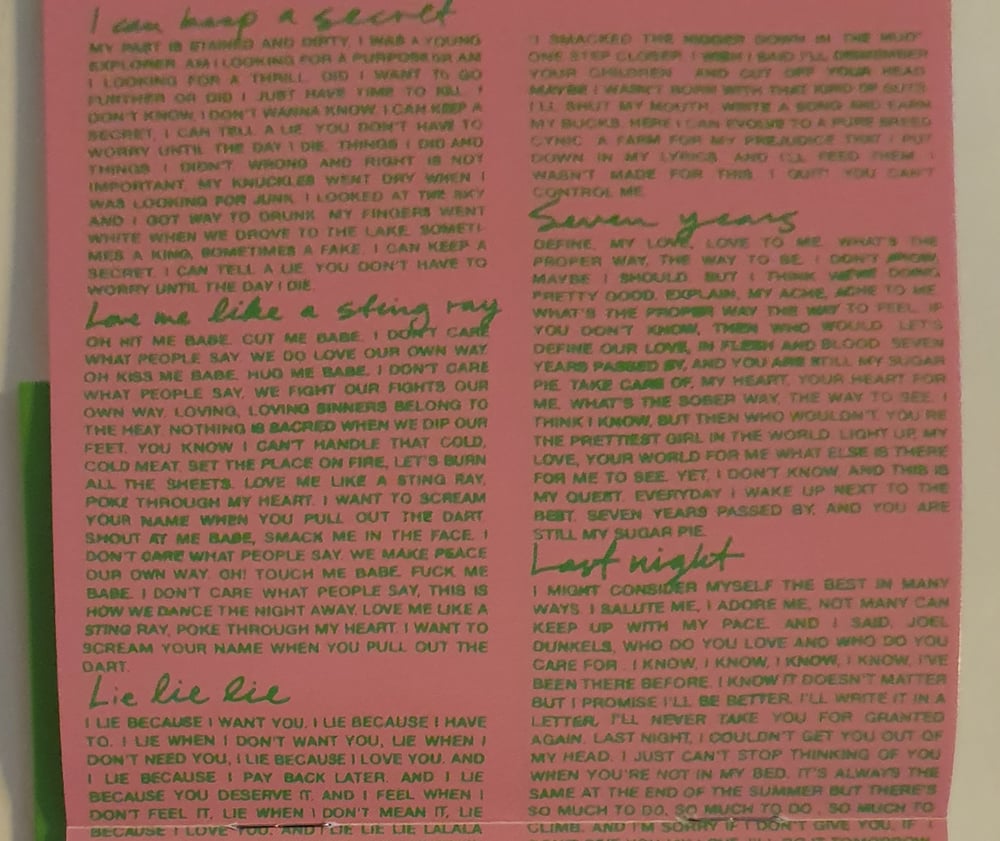 I can keep a secret
MY PART IS STAINED AND DIRTY. I WAS A YOUNG
EXPLORER. AM I LOOKING FOR A PURPOSE OR AM
I LOOKING FOR A THRILL. DID I WANT TO GO
FURTHER OR DID I JUST HAVE TIME TO KILL. I
DON'T KNOW, I DON'T WANNA KNOW. I CAN KEEP A
SECRET, I CAN TELL A LIE. YOU DON'T HAVE TO
WORRY UNTIL THE DAY I DIE. THINGS I DID AND
THINGS I DIDN'T. WRONG AND RIGHT IS NOT
IMPORTANT. MY KNUCKLES WENT DRY WHEN I
WAS LOOKING FOR JUNK. I LOOKED AT THE SKY
AND I GOT WAY TO DRUNK. MY FINGERS WENT
WHITE WHEN WE DROVE TO THE LAKE. SOMETI-
MES A KING, SOMETIMES A FAKE. I CAN KEEP A
SECRET. I CAN TELL A LIE. YOU DON'T HAVE TO
WORRY UNTIL THE DAY I DIE.
Love me like a sting ray
OH HIT ME BABE. CUT ME BABE. I DON'T CARE
WHAT PEOPLE SAY. WE DO LOVE OUR OWN WAY.
OH KISS ME BABE. HUG ME BABE. I DON'T CARE
WHAT PEOPLE SAY. WE FIGHT OUR FIGHTS OUR
OWN WAY. LOVING, LOVING SINNERS BELONG TO
THE HEAT. NOTHING IS SACRED WHEN WE DIP OUR
FEET. YOU KNOW I CAN'T HANDLE THAT COLD,
COLD MEAT. SET THE PLACE ON FIRE, LET'S BURN
ALL THE SHEETS. LOVE ME LIKE A STING RAY,
POKE THROUGH MY HEART. I WANT TO SCREAM
YOUR NAME WHEN YOU PULL OUT THE DART.
SHOUT AT ME BABE, SMACK ME IN THE FACE. I
DON'T CARE WHAT PEOPLE SAY. WE MAKE PEACE
OUR OWN WAY. OH! TOUCH ME BABE. FUCK ME
BABE. I DON'T CARE WHAT PEOPLE SAY, THIS IS
HOW WE DANCE THE NIGHT AWAY. LOVE ME LIKE A
STING RAY, POKE THROUGH MY HEART. I WANT TO
SCREAM YOUR NAME WHEN YOU PULL OUT THE
DART.
Lie lie lie
I LIE BECAUSE I WANT YOU. I LIE BECAUSE I HAVE
TO. I LIE WHEN I DON'T WANT YOU, LIE WHEN I
DON'T NEED YOU, I LIE BECAUSE I LOVE YOU. AND
I LIE BECAUSE I PAY BACK LATER. AND I LIE
BECAUSE YOU DESERVE IT. AND I FEEL WHEN I
DON'T FEEL IT, LIE WHEN I DON'T MEAN IT, LIE
BECAUSE I LOVE YOU. AND I LIE LIE LIE LALALA
"I SMACKED THE DOWN IN THE MUD"
ONE STEP CLOSER. I WISH I SAID I'LL DISMEMBER
YOUR CHILDREN AND CUT OFF YOUR HEAD
MAYBE I WASN'T BORN WITH THAT KIND OF GUTS
I'LL SHUT MY MOUTH, WRITE A SONG AND EARN
MY BUCKS. HERE I CAN EVOLVE TO A PURE BREED
CYNIC. A FARM FOR MY PREJUDICE THAT I PUT
DOWN IN MY LYRICS AND I'LL FEED THEM I
WASN'T MADE FOR THIS. I QUIT! YOU CAN'T
CONTROL ME.
Seven years
DEFINE, MY LOVE, LOVE TO ME. WHAT'S THE
PROPER WAY, THE WAY TO BE. I DON'T KNOW,
MAYBE I SHOULD. BUT I THINK WE'RE DOING
PRETTY GOOD. EXPLAIN, MY ACHE, ACHE TO ME.
WHAT'S THE PROPER WAY THE WAY TO FEEL. IF
YOU DON'T KNOW, THEN WHO WOULD. LET'S
DEFINE OUR LOVE, IN FLESH AND BLOOD. SEVEN
YEARS PASSED BY, AND YOU ARE STILL MY SUGAR
PIE. TAKE CARE OF, MY HEART, YOUR HEART FOR
ME. WHAT'S THE SOBER WAY, THE WAY TO SEE. I
THINK I KNOW, BUT THEN WHO WOULDN'T. YOU'RE
THE PRETTIEST GIRL IN THE WORLD. LIGHT UP, MY
LOVE, YOUR WORLD FOR ME WHAT ELSE IS THERE
FOR ME TO SEE. YET, I DON'T KNOW AND THIS IS
MY QUEST. EVERYDAY I WAKE UP NEXT TO THE
BEST. SEVEN YEARS PASSED BY, AND YOU ARE
STILL MY SUGAR PIE.
Last night
I MIGHT CONSIDER MYSELF THE BEST IN MANY
WAYS. I SALUTE ME, I ADORE ME, NOT MANY CAN
KEEP UP WITH MY PACE. AND I SAID, JOEL
DUNKELS, WHO DO YOU LOVE AND WHO DO YOU
CARE FOR . I KNOW, I KNOW, I KNOW, I KNOW, I'VE
BEEN THERE BEFORE. I KNOW IT DOESN'T MATTER
BUT I PROMISE I'LL BE BETTER. I'LL WRITE IT IN A
LETTER, I'LL NEVER TAKE YOU FOR GRANTED
AGAIN. LAST NIGHT, I COULDN'T GET YOU OUT OF
MY HEAD. I JUST CAN'T STOP THINKING OF YOU
WHEN YOU'RE NOT IN MY BED. IT'S ALWAYS THE
SAME AT THE END OF THE SUMMER BUT THERE'S
SO MUCH TO DO, SO MUCH TO DO . SO MUCH TO
CLIMB. AND I'M SORRY IF I DON'T GIVE YOU, IF I